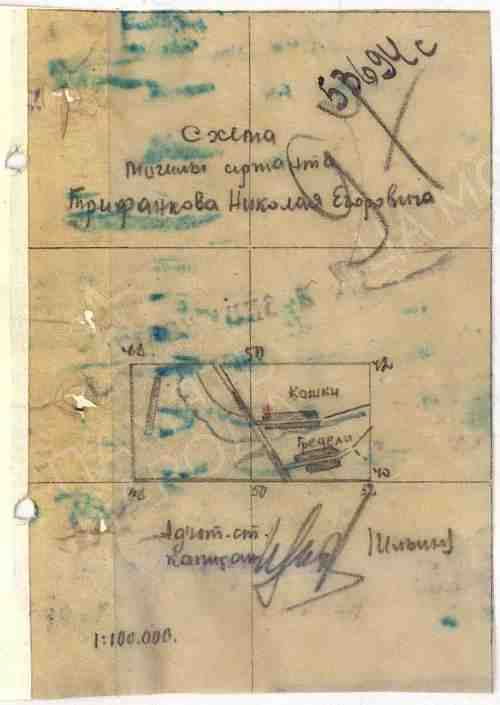 53694с
Схема
могилы сержанта
Трифанкова Николая Егоровича
48. 50 42
Кошки
Гредели
40
48 50 52
Адъют. ст.
капитан (Ильин)
1:100.000.